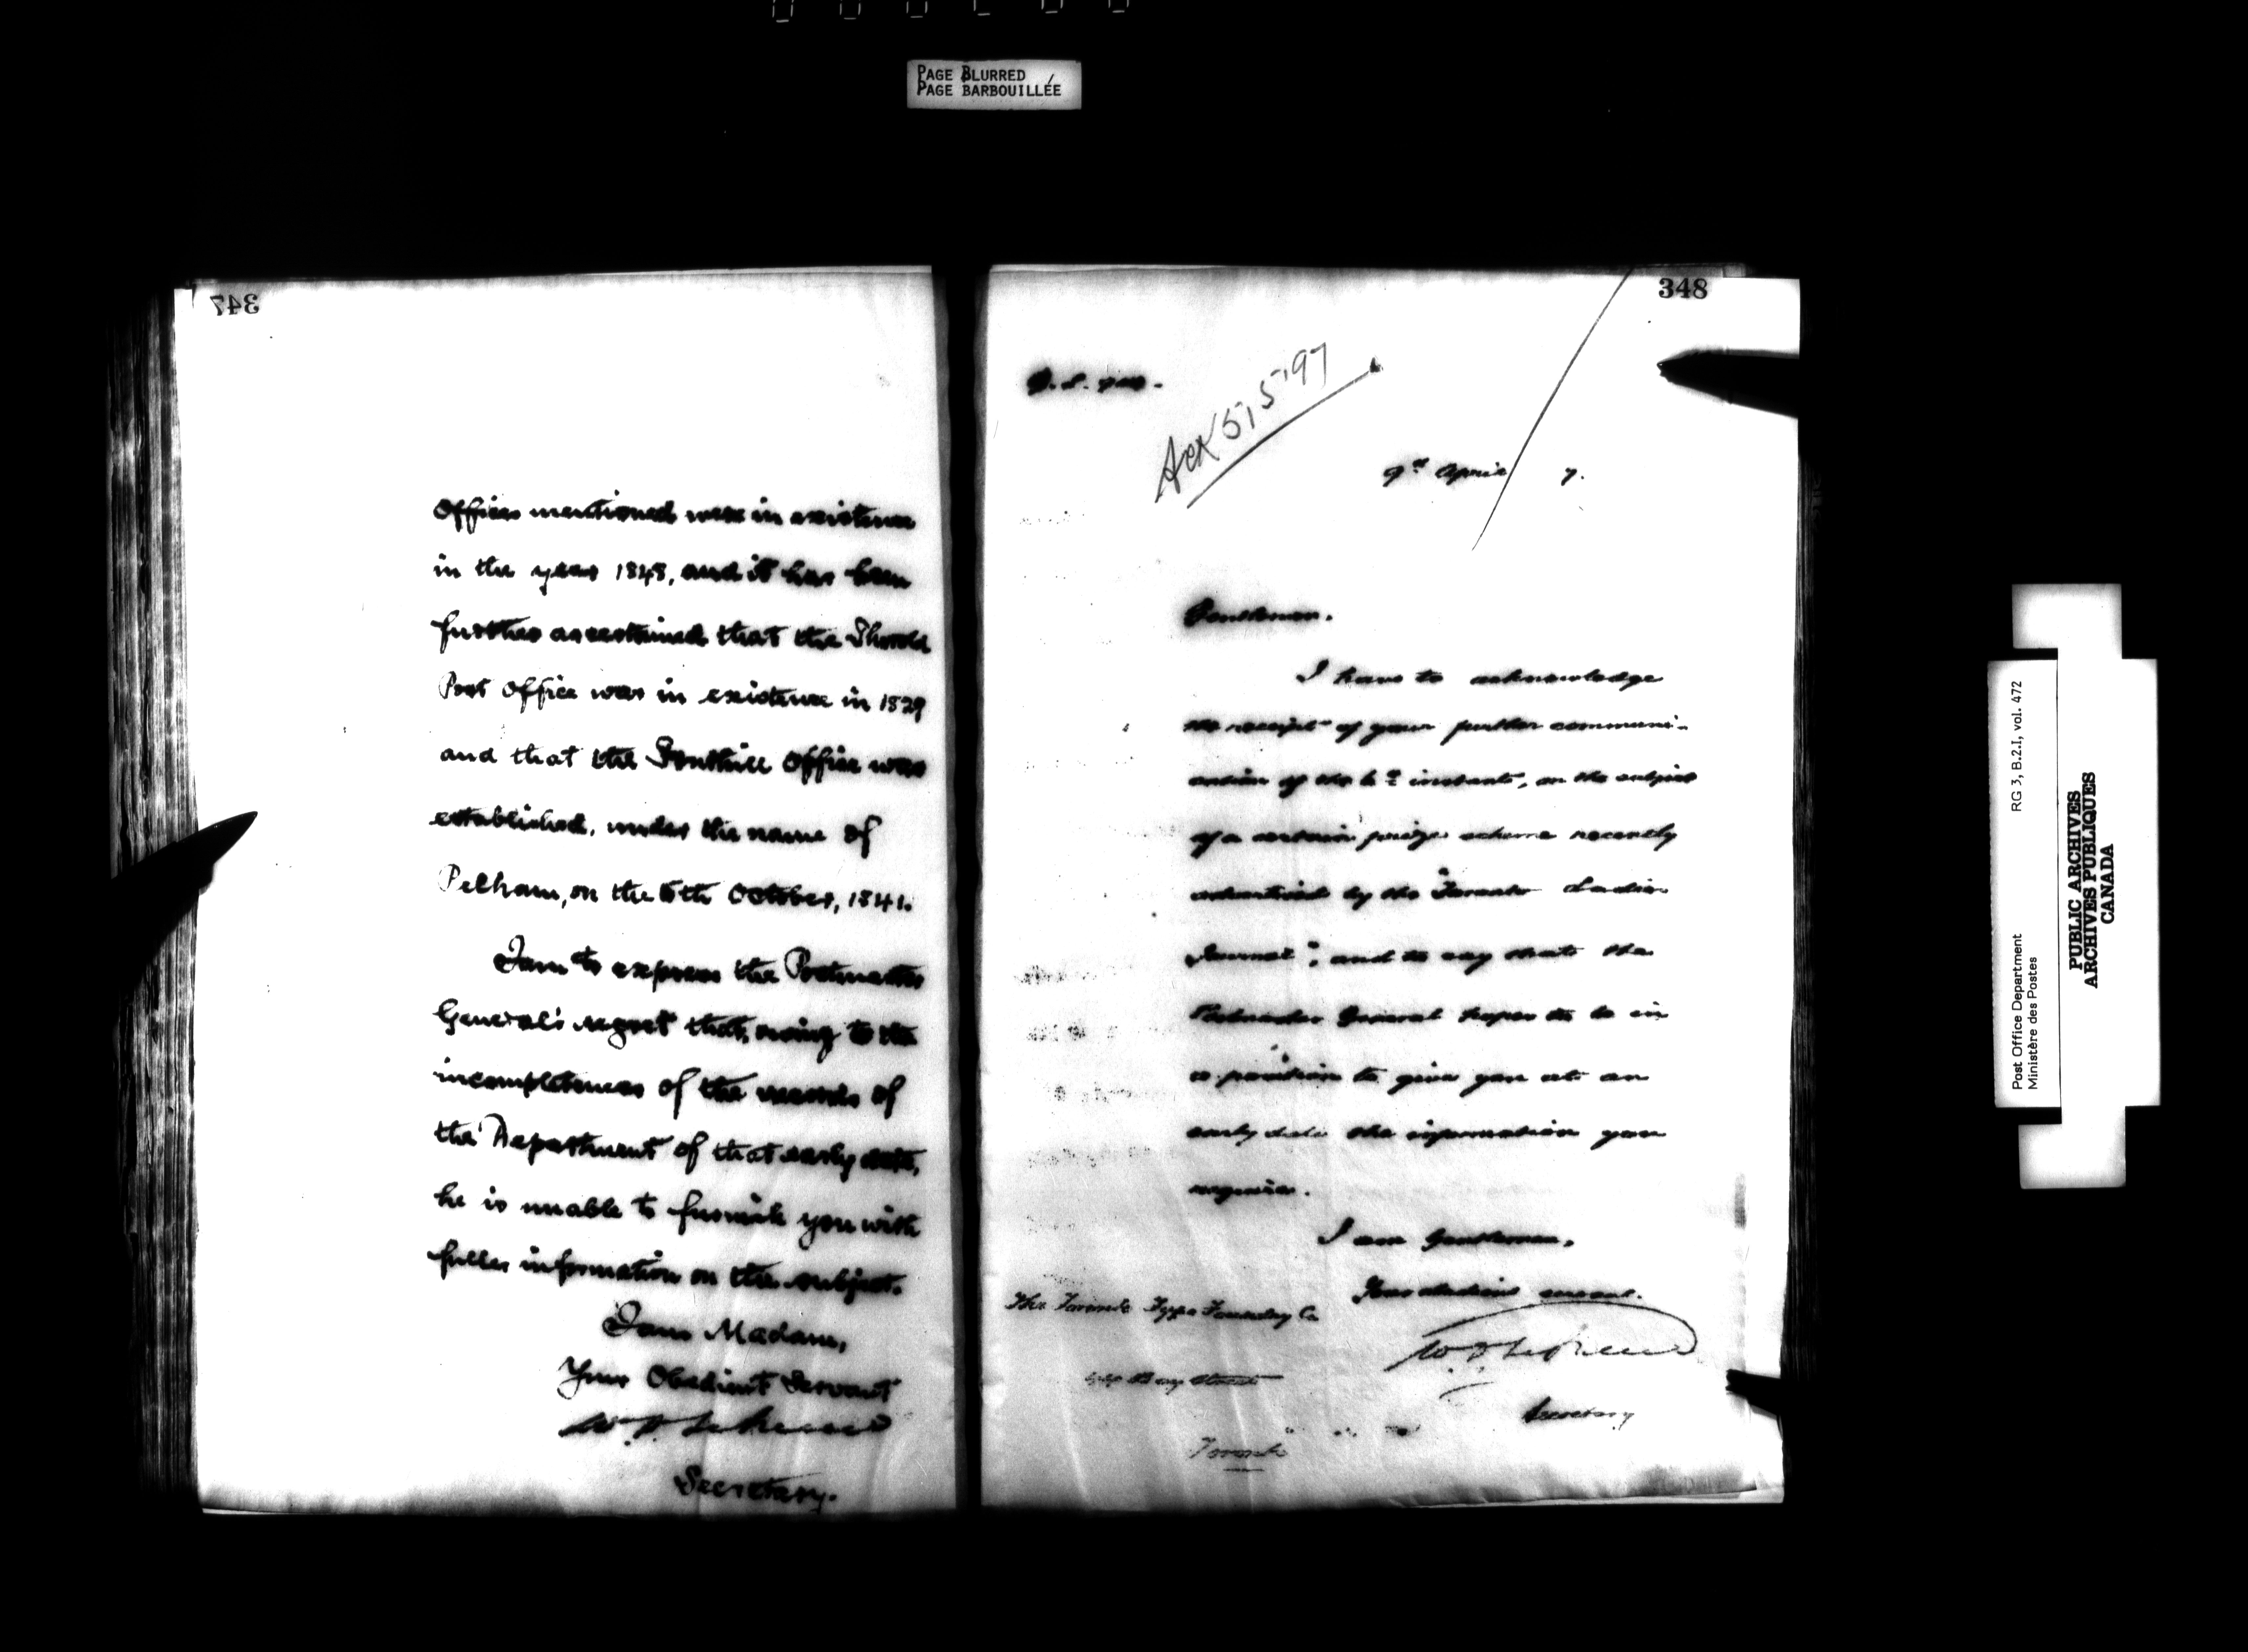 PAGE BLURRED
PAGE BARBOUILLÉE
347
Offices mentioned were in existence
in the year 1848, and it has been
further ascertained that the Thorold
Post Office was in existence in 1829
and that the Fonthill Office was
established, under the name of
Pelham, on the 6th October, 1841.
I am to express the Postmaster
General's regret that, owing to the
incompleteness of the records of
the Department of that early date,
he is unable to furnish you with
fuller information on the subject.
I am Madam,
Your Obedient Servant
Secretary.
348
Ack 5, 5 '97
9th April 7.
Gentlemen.
I have to acknowledge
the receipt of your further communi-
cation of the instant, on the subject
of a certain prize scheme recently
advertised by the "Toronto Ladies
Journal", and to say that the
Postmaster General hopes to be in
a position to give you at an
early date the information you
require.
I am Gentlemen,
Your obedient servant.
Secretary
The Toronto Type Foundry Co
Bay Street
Toronto
Post Office Department
Ministère des Postes
RG 3, B.2.I, vol. 472
PUBLIC ARCHIVES
ARCHIVES PUBLIQUES
CANADA